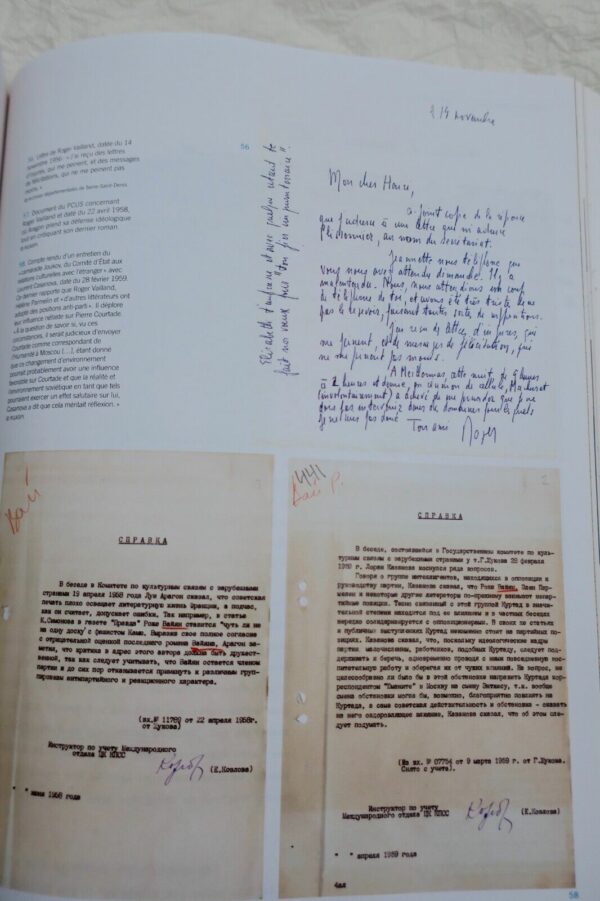 56. Lettre de Roger Vailland, datée du 14
novembre 1956 : « J'ai reçu des lettres
d'injures, qui me peinent, et des messages
de félicitations, qui ne me peinent pas
moins. »
Archives départementales de Seine-Saint-Denis
57. Document du PCUS concernant
Roger Vailland et daté du 22 avril 1958,
où Aragon prend sa défense idéologique
tout en critiquant son dernier roman.
58. Compte rendu d'un entretien du
« camarade Joukov, du Comité d'État aux
relations culturelles avec l'étranger » avec
Laurent Casanova, daté du 28 février 1959.
Ce dernier rapporte que Roger Vailland,
Hélène Parmelin et « d'autres littérateurs ont
adopté des positions anti-parti ». Il déplore
leur influence néfaste sur Pierre Courtade.
« À la question de savoir si, vu ces
circonstances, il serait judicieux d'envoyer
Courtade comme correspondant de
l'Humanité à Moscou (...), étant donné
que ce changement d'environnement
pourrait probablement avoir une influence
favorable sur Courtade et que la réalité et
l'environnement soviétique en tant que tels
pourraient exercer un effet salutaire sur lui,
Casanova a dit que cela méritait réflexion. »
56
novembre
Mon cher
a joint copie de la réponse
que j'adresse à une lettre que m'adresse
au nom du Secrétariat.
Jeannette nous téléphone que
vous nous avez attendu dimanche. Il y a
malentendu. Nous, nous attendions un coup
de téléphone de toi, et avons été très tristes de ne
pas le recevoir, faisant toutes sortes de suppositions.
J'ai reçu des lettres d'injures, qui
me peinent, et des messages de félicitations, qui
ne me peinent pas moins.
A Meillonnas, cette nuit, de 9 heures
à 2 heures et demie, en réunion de cellule,
(involontairement) a achevé de me persuader que je ne
dois pas intervenir dans des domaines pour lesquels
je ne suis pas doué. Ton ami
Roger
Вай
СПРАВКА
В беседе в Комитете по культурным связям с зарубежными
странами 19 апреля 1958 года Луи Арагон сказал, что советская
печать плохо освещает литературную жизнь Франции, а подчас,
как он считает, допускает ошибки. Так например, в статье
К.Симонова в газете "Правда" Роже Вайян ставится "чуть ли не
на одну доску с фашистом Камю. Выразив свое полное согласие
с отрицательной оценкой последнего романа Вайяна, Арагон за-
метил, что критика в адрес этого автора должна быть дружест-
венной, так как следует учитывать, что Вайян остается членом
партии и до сих пор отказывается примкнуть к различным груп-
пировкам антипартийного и реакционного характера.
(вх.№ 11789 от 22 апреля 1958г.
от Жукова)
Инструктор по учету Международного
отдела ЦК КПСС
(Е.Козлова)
" " июня 1958 года
441
Вай Р.
2
СПРАВКА
В беседе, состоявшейся в Государственном комитете по куль-
турным связям с зарубежными странами у т.Г.Жукова 28 февраля
1959 г. Лоран Казанова коснулся ряда вопросов.
Говоря о группе интеллигентов, находящихся в оппозиции к
руководству партии, Казанова сказал, что Роже Вайян, Элен Пар-
мелен и некоторые другие литераторы по-прежнему занимают непар-
тийные позиции. Тесно связанный с этой группой Куртад в значи-
тельной степени находится под ее влиянием и в частных беседах
нередко солидаризируется с оппозиционерами. В своих же статьях
и публичных выступлениях Куртад неизменно стоит на партийных по-
зициях. Казанова сказал, что, поскольку идеологические кадры
партии малочисленны, работников, подобных Куртаду, следует под-
держивать и беречь, одновременно проводя с ними повседневную вос-
питательную работу и оберегая их от чужих влияний. На вопрос, не
целесообразно ли было бы в этой обстановке направить Куртада кор-
респондентом "Юманите" в Москву на смену Энтажсу, т.к. вообще
смена обстановки могла бы, возможно, благоприятно повлиять на
Куртада, а сама советская действительность и обстановка - оказать
на него оздоровляющее влияние, Казанова сказал, что об этом сле-
дует подумать.
(Из вх. № 07784 от 9 марта 1959 г. от Г.Жукова.
Снято с учета).
Инструктор по учету
Международного отдела ЦК КПСС
(Е.Козлова)
" " апреля 1959 года
4ая
58